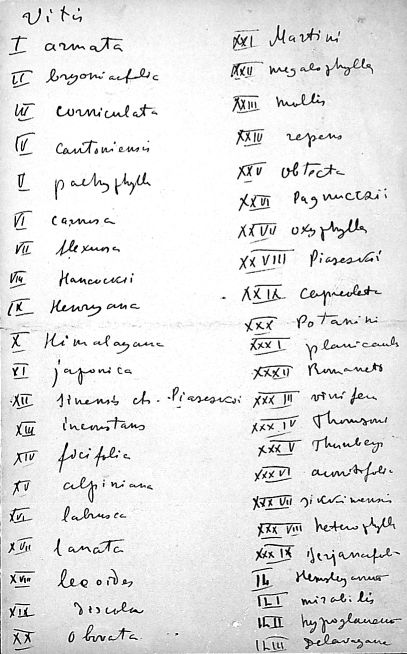 Vitis
I armata
II bryoniaefolia
III corniculata
IV cantoniensis
V pachyphylla
VI carnosa
VII flexuosa
VIII Hancockii
IX Henryana
X Himalayana
XI japonica
XII sinensis ch. Piasezkii
XIII inconstans
XIV ficifolia
XV alpiniana
XVI labrusca
XVII lanata
XVIII leeoides
XIX discolor
XX obovata
XXI Martini
XXII megalophylla
XXIII mollis
XXIV repens
XXV obtecta
XXVI Pagnuccii
XXVII oxyphylla
XXVIII Piasezkii
XXIX capreolata
XXX Potanini
XXXI planicaulis
XXXII Romaneti
XXXIII vinifera
XXXIV Thomsoni
XXXV Thunbergi
XXXVI aconitifolia
XXXVII sikkimensis
XXXVIII heterophylla
XXXIX serjanaefol
IL Hemsleyanus
ILI mirabilis
ILII hypoglauca
ILIII Delavayana